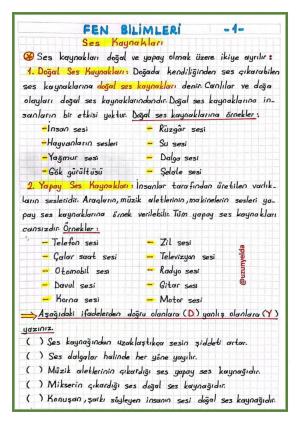 FEN BİLİMLERİ -1-
Ses Kaynakları
Ses kaynakları doğal ve yapay olmak üzere ikiye ayrılır:
1. Doğal Ses Kaynakları: Doğada kendiliğinden ses çıkarabilen
ses kaynaklarına doğal ses kaynakları denir. Canlılar ve doğa
olayları doğal ses kaynaklarındandır. Doğal ses kaynaklarına in-
sanların bir etkisi yoktur. Doğal ses kaynaklarına örnekler:
-İnsan sesi - Rüzgâr sesi
-Hayvanların sesleri - Su sesi
-Yağmur sesi - Dalga sesi
-Gök gürültüsü - Şelale sesi
2. Yapay Ses Kaynakları: İnsanlar tarafından üretilen varlık-
ların sesleridir. Araçların, müzik aletlerinin, makinelerin sesleri ya-
pay ses kaynaklarına örnek verilebilir. Tüm yapay ses kaynakları
cansızdır. Örnekler:
- Telefon sesi - Zil sesi
- Çalar saat sesi - Televizyon sesi
- Otomobil sesi - Radyo sesi
- Davul sesi - Gitar sesi
- Korna sesi - Motor sesi
@uzunyelda
Aşağıdaki ifadelerden doğru olanlara (D) yanlış olanlara (Y)
yazınız.
( ) Ses kaynağından uzaklaştıkça sesin şiddeti artar.
( ) Ses dalgalar halinde her yöne yayılır.
( ) Müzik aletlerinin çıkardığı ses yapay ses kaynağıdır.
( ) Mikserin çıkardığı ses doğal ses kaynağıdır.
( ) Konuşan, şarkı söyleyen insanın sesi doğal ses kaynağıdır.